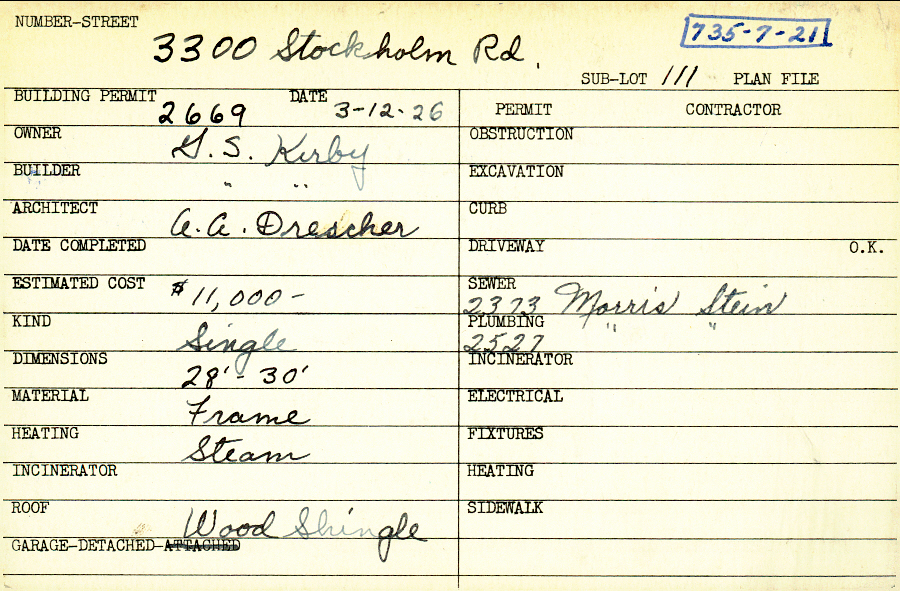 NUMBER-STREET
3300 Stockholm Rd.
735-7-21
SUB-LOT 111 PLAN FILE
BUILDING PERMIT 2669 DATE 3-12-26
PERMIT CONTRACTOR
OWNER G. S. Kirby
OBSTRUCTION
BUILDER " "
EXCAVATION
ARCHITECT A. A. Drescher
CURB
DATE COMPLETED
DRIVEWAY O.K.
ESTIMATED COST $11,000-
SEWER
2373 Morris Stein
KIND Single
PLUMBING " "
2527
DIMENSIONS 28'- 30'
INCINERATOR
MATERIAL Frame
ELECTRICAL
HEATING Steam
FIXTURES
INCINERATOR
HEATING
ROOF Wood Shingle
SIDEWALK
GARAGE-DETACHED-ATTACHED